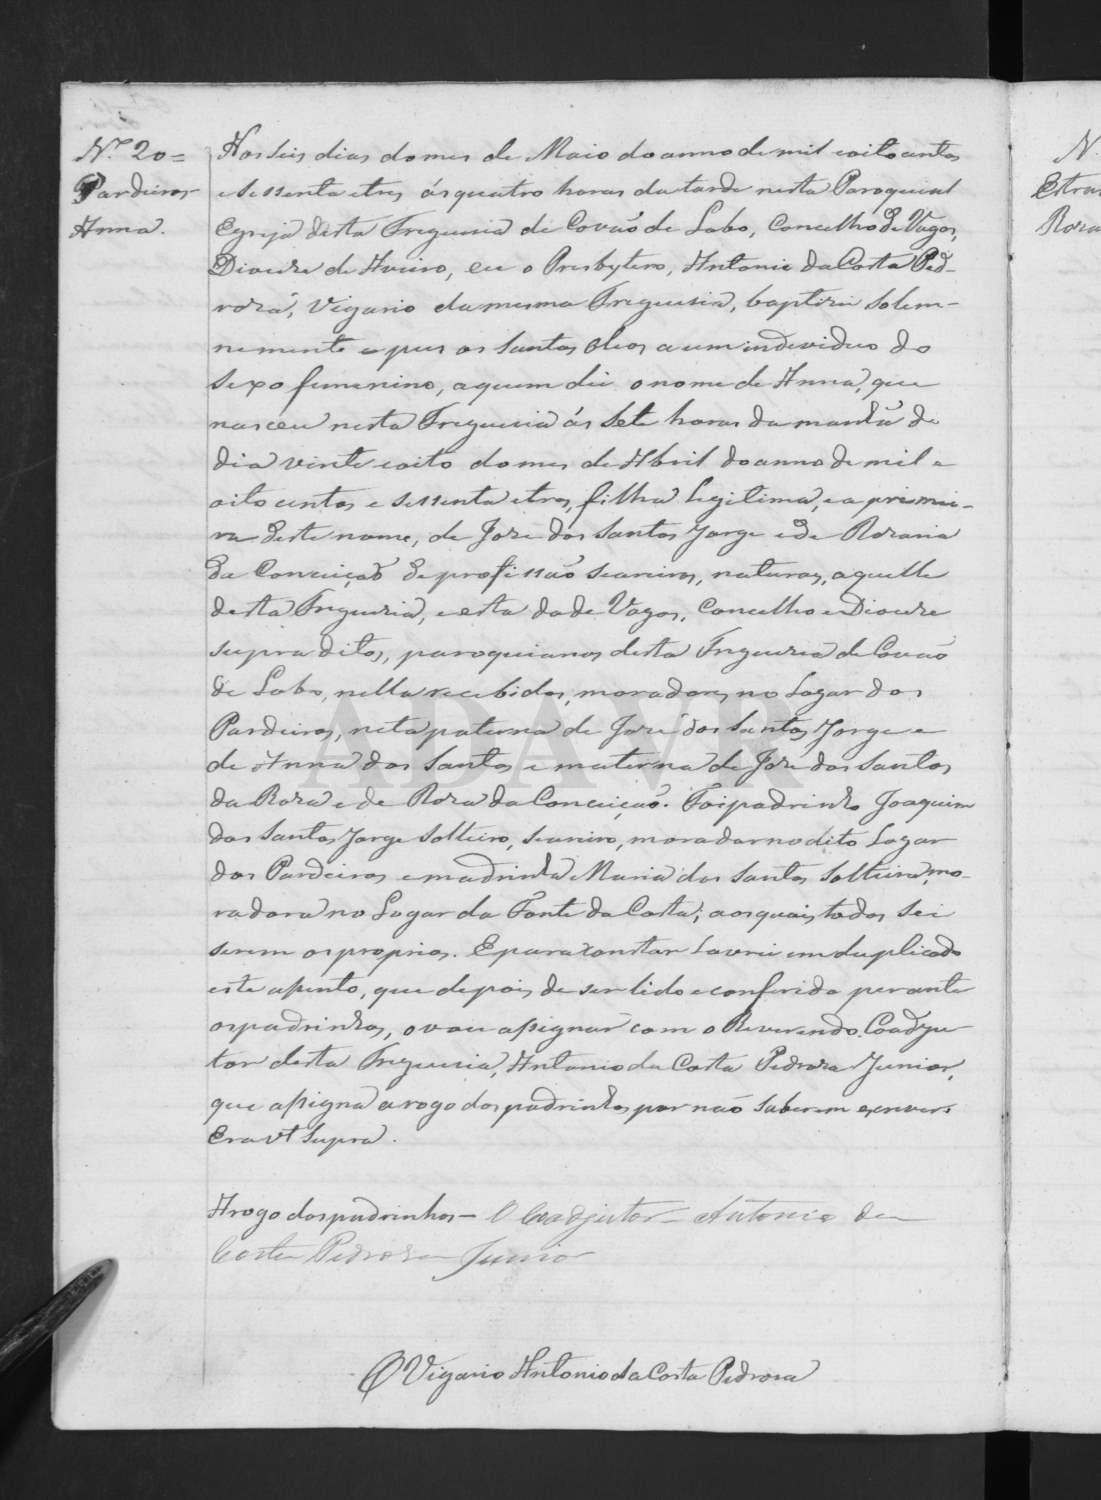 Nº 20=
Pardieiros
Anna.
Aos seis dias do mes de Maio do anno de mil oito centos
e sessenta e tres ás quatro horas da tarde nesta Paroquial
Egreja desta Freguesia de Covão de Lobo, Concelho de Vagos,
Diocese de Aveiro, eu o Presbytero, Antonio da Costa Ped-
roza, Vigario da mesma Freguesia, baptizei solem-
nemente e pus os Santos Oleos a um individuo do
sexo femenino, a quem dei o nome de Anna, que
nasceu nesta Freguesia ás sete horas da manhã do
dia vinte e oito do mes de Abril do anno de mil e
oito centos e sessenta e tres, filha legitima, e a primei-
ra deste nome, de Joze dos Santos Jorge e de Rozaria
da Conceição de profissão seareiros, naturaes, aquelle
desta Freguezia, e esta da de Vagos, Concelho e Diocese
supra ditos, paroquianos desta Freguezia de Covão
de Lobo, nella recebidos, moradores no Logar dos
Pardieiros, neta paterna de José dos Santos Jorge e
de Anna dos Santos e materna de Joze dos Santos
da Roza e de Roza da Conceição. Foi padrinho Joaquim
dos Santos Jorge Solteiro, seareiro, morador no dito Logar
dos Pardieiros e madrinha Maria dos Santos Solteira, mo-
radora no Logar da Fonte da Costa; aos quais todos sei
serem os proprios. E para constar lavrei em duplicado
este assento, que depois de ser lido e conferido perante
os padrinhos, o vou assignar com o Reverendo Coadju-
tor desta Freguesia, Antonio da Costa Pedroza Junior,
que assigna a rogo dos padrinhos por não saberem escrever.
Era ut supra.
A rogo dos padrinhos – O Coadjutor – Antonio da
Costa Pedroza Junior
O Vigario Antonio da Costa Pedroza
ADAVR
Nº
Rosa